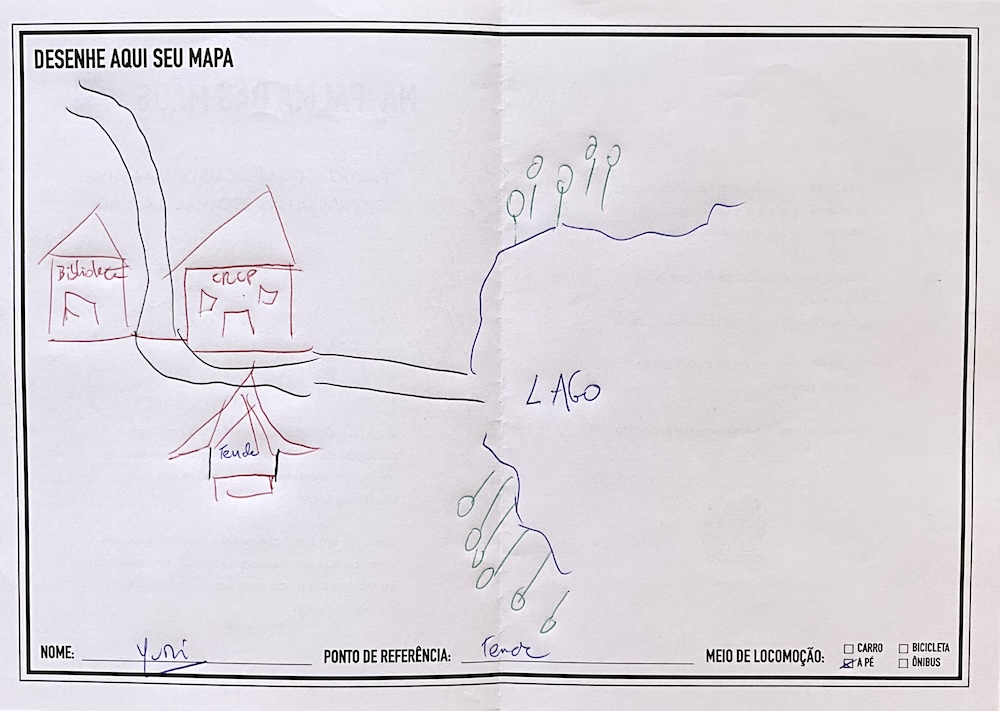 DESENHE AQUI SEU MAPA
Biblioteca
CRCP
LAGO
Tenda
NOME: Yuri
PONTO DE REFERÊNCIA: Tenda
MEIO DE LOCOMOÇÃO:
☐ CARRO ☐ BICICLETA
☒ A PÉ ☐ ÔNIBUS